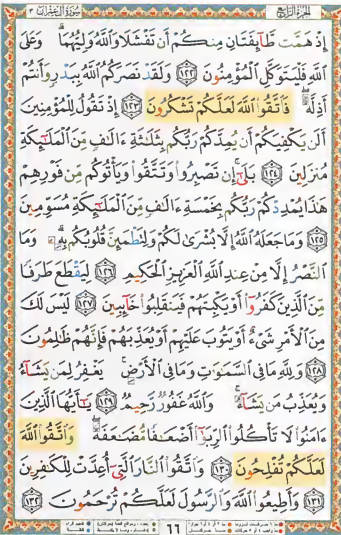 الجزء الرابع سورة آل عمران ٣
إِذْ هَمَّت طَّآئِفَتَانِ مِنكُمْ أَن تَفْشَلَا وَاللَّهُ وَلِيُّهُمَا ۗ وَعَلَى
اللَّهِ فَلْيَتَوَكَّلِ الْمُؤْمِنُونَ ١٢٢ وَلَقَدْ نَصَرَكُمُ اللَّهُ بِبَدْرٍ وَأَنتُمْ
أَذِلَّةٌ ۖ فَاتَّقُوا اللَّهَ لَعَلَّكُمْ تَشْكُرُونَ ١٢٣ إِذْ تَقُولُ لِلْمُؤْمِنِينَ
أَلَن يَكْفِيَكُمْ أَن يُمِدَّكُمْ رَبُّكُم بِثَلَٰثَةِ ءَالَٰفٍ مِّنَ الْمَلَٰٓئِكَةِ
مُنزَلِينَ ١٢٤ بَلَىٰٓ ۚ إِن تَصْبِرُوا وَتَتَّقُوا وَيَأْتُوكُم مِّن فَوْرِهِمْ
هَٰذَا يُمْدِدْكُمْ رَبُّكُم بِخَمْسَةِ ءَالَٰفٍ مِّنَ الْمَلَٰٓئِكَةِ مُسَوِّمِينَ
١٢٥ وَمَا جَعَلَهُ اللَّهُ إِلَّا بُشْرَىٰ لَكُمْ وَلِتَطْمَئِنَّ قُلُوبُكُم بِهِ ۗ وَمَا
النَّصْرُ إِلَّا مِنْ عِندِ اللَّهِ الْعَزِيزِ الْحَكِيمِ ١٢٦ لِيَقْطَعَ طَرَفًا
مِّنَ الَّذِينَ كَفَرُوٓا أَوْ يَكْبِتَهُمْ فَيَنقَلِبُوا خَآئِبِينَ ١٢٧ لَيْسَ لَكَ
مِنَ الْأَمْرِ شَىْءٌ أَوْ يَتُوبَ عَلَيْهِمْ أَوْ يُعَذِّبَهُمْ فَإِنَّهُمْ ظَٰلِمُونَ
١٢٨ وَلِلَّهِ مَا فِى السَّمَٰوَٰتِ وَمَا فِى الْأَرْضِ ۚ يَغْفِرُ لِمَن يَشَآءُ
وَيُعَذِّبُ مَن يَشَآءُ ۚ وَاللَّهُ غَفُورٌ رَّحِيمٌ ١٢٩ يَٰٓأَيُّهَا الَّذِينَ
ءَامَنُوا لَا تَأْكُلُوا الرِّبَوٰٓا أَضْعَٰفًا مُّضَٰعَفَةً ۖ وَاتَّقُوا اللَّهَ
لَعَلَّكُمْ تُفْلِحُونَ ١٣٠ وَاتَّقُوا النَّارَ الَّتِىٓ أُعِدَّتْ لِلْكَٰفِرِينَ
١٣١ وَأَطِيعُوا اللَّهَ وَالرَّسُولَ لَعَلَّكُمْ تُرْحَمُونَ ١٣٢
٦٦